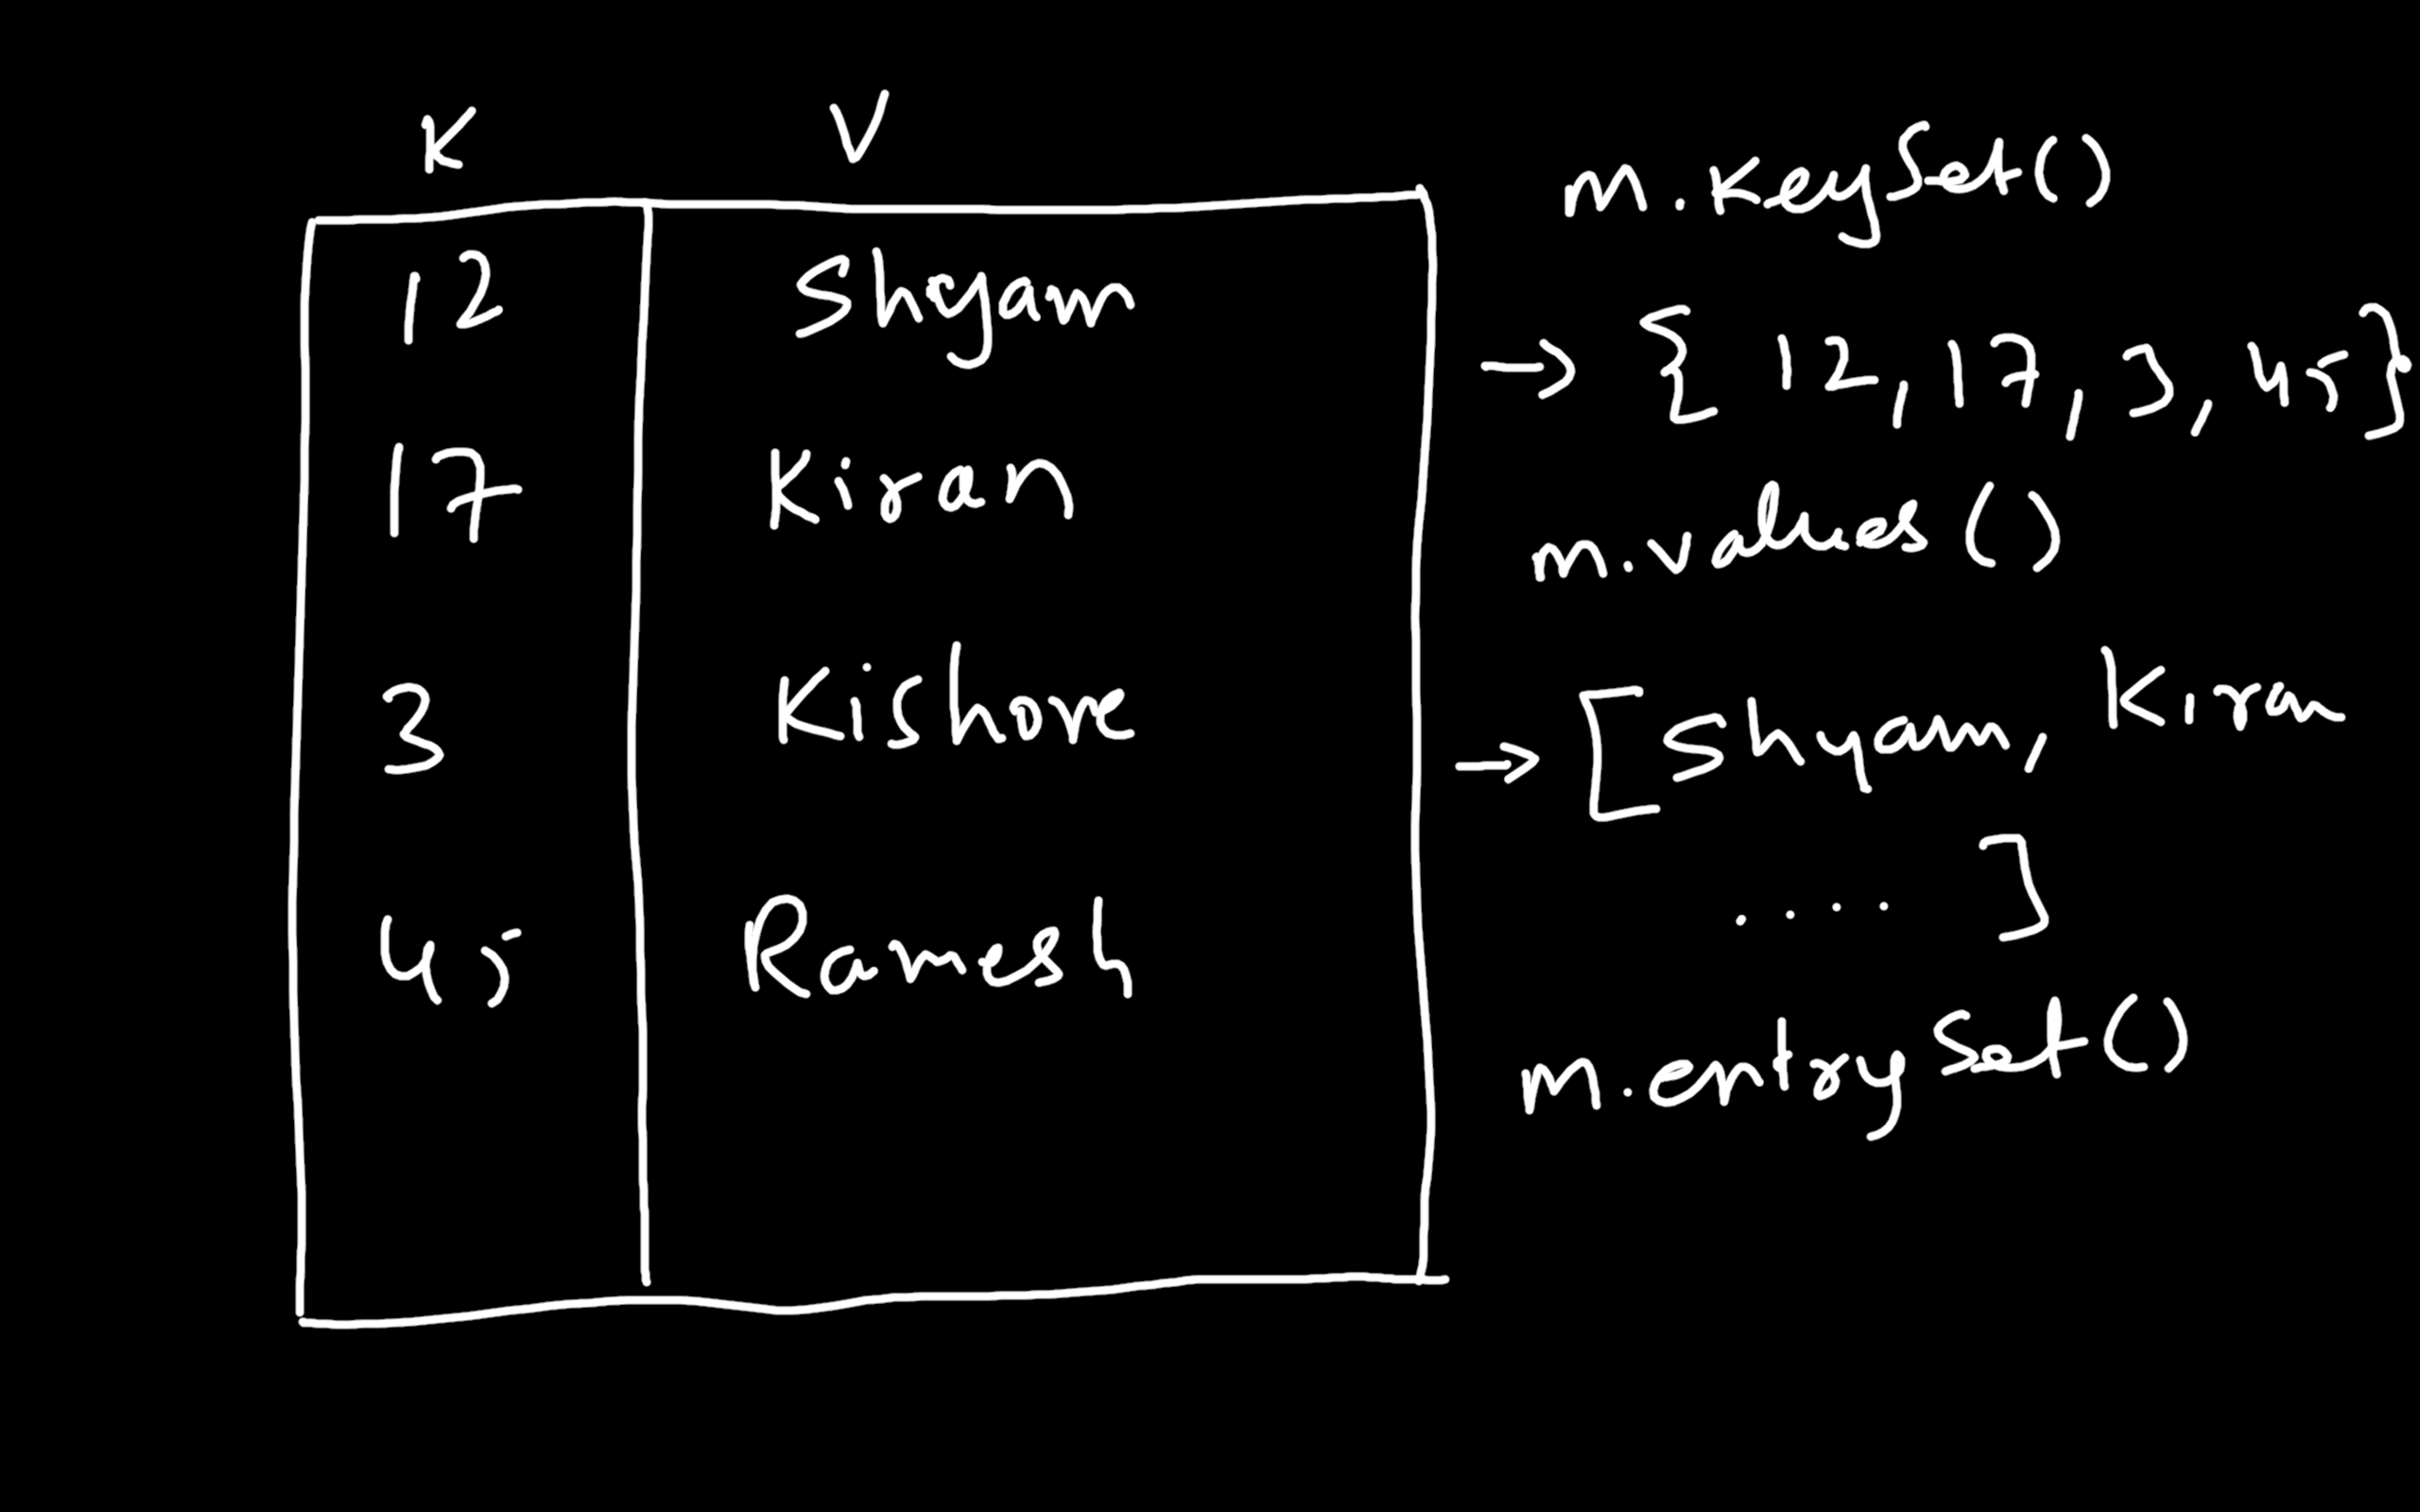 K V
12 Shyam
17 Kiran
3 Kishore
45 Ramesh
m.keySet()
→ { 12, 17, 3, 45}
m.values()
→ [Shyam, Kiran
.... ]
m.entrySet()